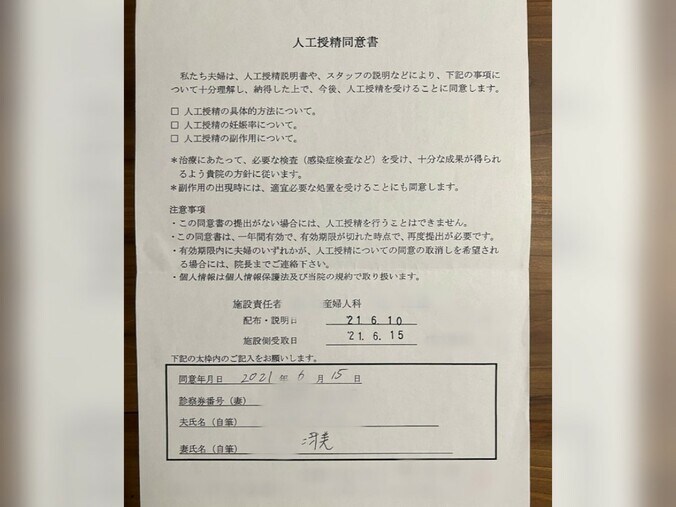 人工授精同意書
私たち夫婦は、人工授精説明書や、スタッフの説明などにより、下記の事項に
ついて十分理解し、納得した上で、今後、人工授精を受けることに同意します。
□ 人工授精の具体的方法について。
□ 人工授精の妊娠率について。
□ 人工授精の副作用について。
*治療にあたって、必要な検査（感染症検査など）を受け、十分な成果が得られ
るよう貴院の方針に従います。
*副作用の出現時には、適宜必要な処置を受けることにも同意します。
注意事項
・この同意書の提出がない場合には、人工授精を行うことはできません。
・この同意書は、一年間有効で、有効期限が切れた時点で、再度提出が必要です。
・有効期限内に夫婦のいずれかが、人工授精についての同意の取消しを希望され
る場合には、院長までご連絡下さい。
・個人情報は個人情報保護法及び当院の規約で取り扱います。
施設責任者 産婦人科
配布・説明日 '21 6.10
施設側受取日 '21.6.15
下記の太枠内のご記入をお願いします。
同意年月日 2021 年 6 月 15 日
診察券番号（妻）
夫氏名（自筆）
妻氏名（自筆）